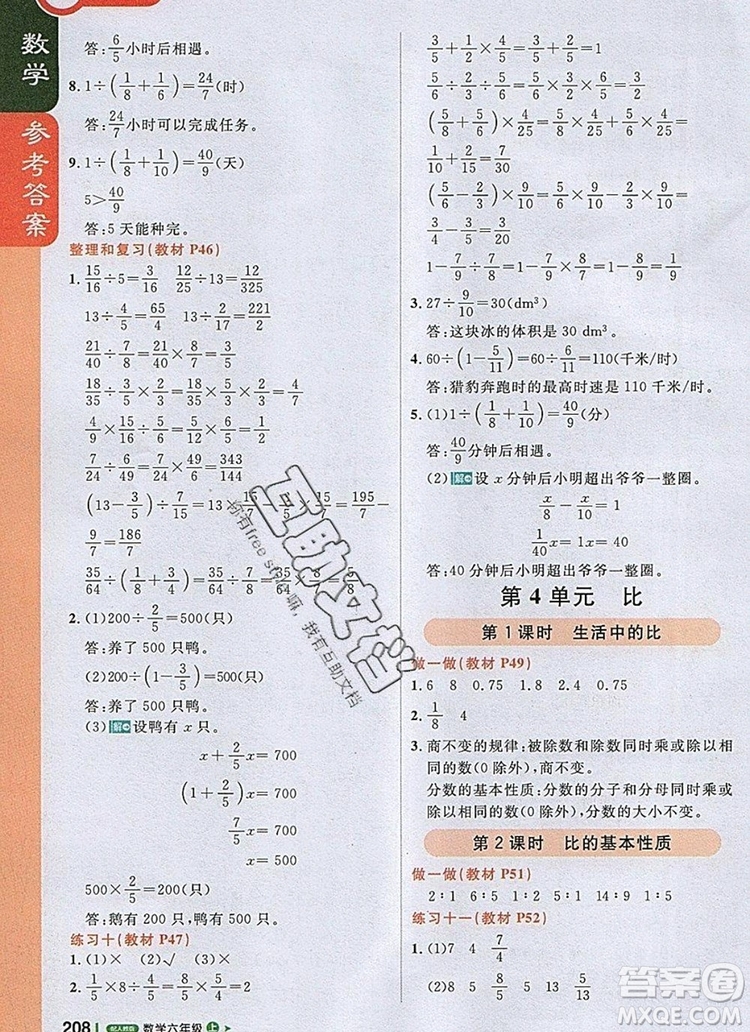 数学
参考答案
答:6/5小时后相遇。
8. 1÷(1/8+1/6)=24/7(时)
答:24/7小时可以完成任务。
9. 1÷(1/8+1/10)=40/9(天)
5>40/9
答:5天能种完。
整理和复习(教材 P46)
1. 15/16÷5=3/16 12/25÷13=12/325
13÷4/5=65/4 13÷2/17=221/2
21/40÷7/10=21/40×10/7=3/4
18/35÷9/10=18/35×10/9=4/7
4/9÷8/15=4/9×15/8=5/6
7/24÷6/49=7/24×49/6=343/144
(13-3/5)÷7/15=13×15/7-3/5×15/7=195/7-
9/7=186/7
35/64÷(7/8÷
2. (1)200÷2/5=500(只)
答:养了 500 只鸭。
(2)200÷(1-3/5)=500(只)
答:养了 500 只鸭。
(3)解设鸭有 x 只。
x+2/5x=700
(1+2/5)x=700
7/5x=700
x=500
500×2/5=200(只)
答:鹅有 200 只,鸭有 500 只。
练习十(教材 P47)
1. (1)× (2)√ (3)×
2. 1/5×8÷1/5×8=8/5×5×8=64
208 配人教版 数学六年级 上
3/5÷4/5+1/4=3/5×5/4+1/4=1
5/6×4/25÷2/3=5/6×4/25×3/2=1/5
(5/6+2/5)×4/25=5/6×4/25+2/5×4/25=
(5/6-2/5)×3/4=5/6×3/4-2/5×3/4=
1-1/7÷9/7=1-1/7×7/9=1-1/9=8/9
3. 27÷9/10=30(dm³)
答:这块冰的体积是 30 dm³。
4. 60÷(1-5/11)=60÷6/11=110(千米/时)
答:猎豹奔跑时的最高时速是 110 千米/时。
5. (1)1÷(1/8+1/10)=40/9(分)
答:40/9分钟后相遇。
(2)解设 x 分钟后小明超出爷爷一整圈。
x/8-x/10=1
1/40x=1 x=40
答:40 分钟后小明超出爷爷一整圈。
第 4 单元 比
第 1 课时 生活中的比
做一做(教材 P49)
1. 6 8 0.75 1.8 2.4 0.75
2. 1/8 4
3. 商不变的规律:被除数和除数同时乘或除以相同的数(0 除外),商不变。
分数的基本性质:分数的分子和分母同时乘或除以相同的数(0 除外),分数的大小不变。
第 2 课时 比的基本性质
做一做(教材 P51)
2∶1 6∶5
练习十一(教材 P52)
1. (1)7 4 7/4
(2)8 5
互助文档
你有free style嘛,我有互助文档
答案圈
MXQE.COM